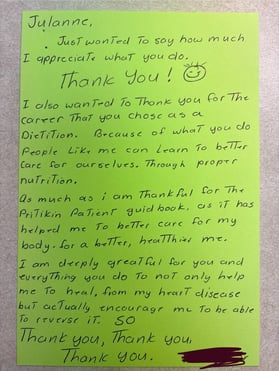 Julanne,
. Just wanted to say how much
I appreciate what you do.
Thank you!
I also wanted to Thank you for The
career That you chose as a
Dietition. Because of what you do
People like me can Learn to better
Care for ourselves. Through proper
nutrition.
As much as i am Thankful for The
Pritikin Patient guid book. as it has
helped me to better care for my
body. for a better, healthier me.
I am deeply greatful for you and
everything you do to not only help
me to heal, from my heart disease
but actually encourage me to be able
to reverse it. SO
Thank you, Thank you,
Thank you.